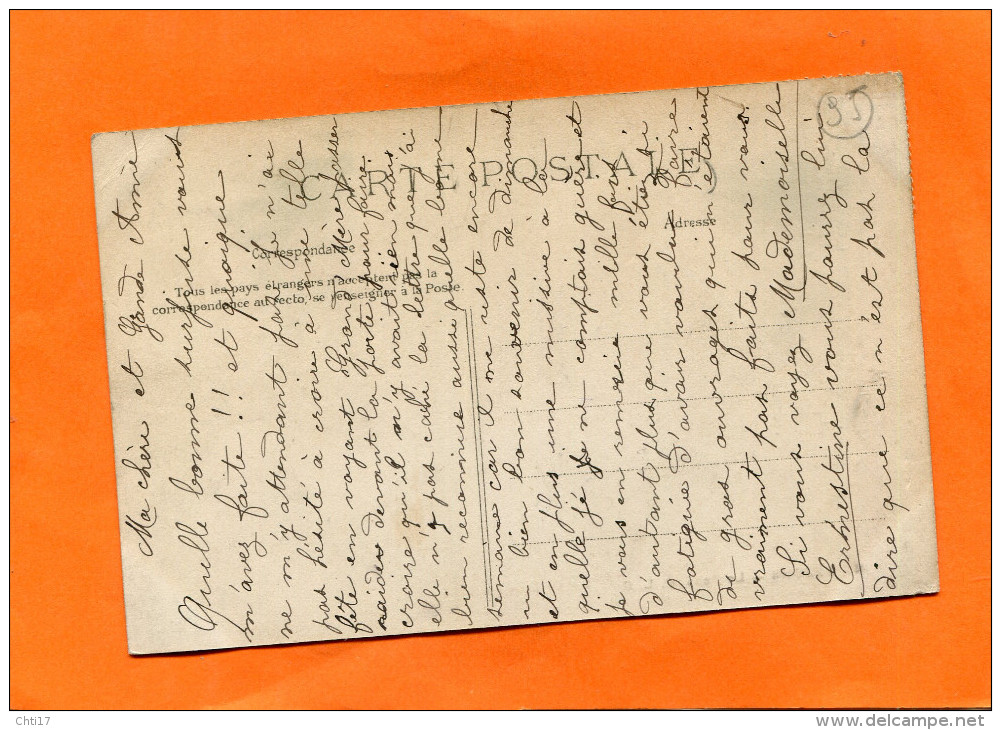 Ma chère et Grande Amie
Quelle bonne surprise vous
m'avez faite!! et quoique
ne m'y attendant pas je n'ai
pas hésité à croire à une telle
fête en voyant Grand'Mère passer
devant la porte pour faire
croire qu'il n'y avait rien mais
elle n'y pas caché la lettre que j'ai
bien reconnue aussi quelle bonne
semaine car il me reste encore
un bien bon souvenir de dimanche
et en plus une missive à la
quelle je ne comptais guère et
je vous en remercie mille fois
d'autant plus que vous étiez si
fatiguée d'avoir voulu faire
de gros ouvrages qui n'étaient
vraiment pas faits pour vous.
Si vous voyez Mademoiselle
Ernestine vous pourrez lui
dire que ce n'est pas la
CARTE POSTALE
Correspondance
Adresse
Tous les pays étrangers n'acceptent pas la
correspondance au recto, se renseigner à la Poste.
35
Chti17
delcampe.net